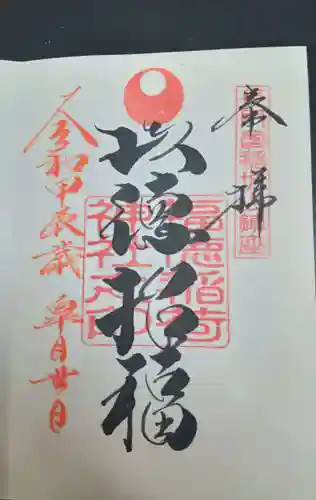 奉拝
以德招福
福德稲荷神社之印
令和甲辰歳 皐月廿日